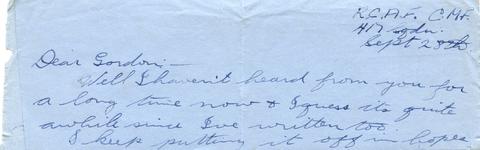 R.C.A.F. C.M.F.
417 Sqdn.
Sept 28th
Dear Gordon:—
Well I haven't heard from you for
a long time now & I guess its quite
awhile since I've written too.
I keep putting it off in hopes